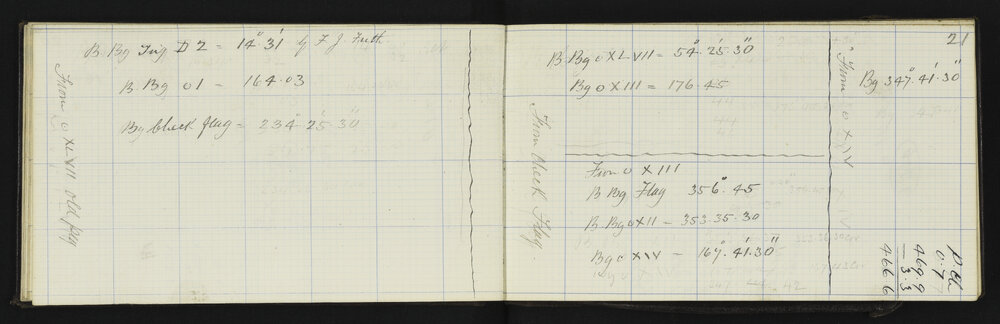 From o XLVII old flag
B. Bg Trig D 2 = 14°. 31' by F J
B Bg o 1 = 164. 03
Bg Check flag = 234°. 25'. 30"
21
From Check Flag.
B Bg o XLVII = 54°. 25'. 30"
Bg o XIII = 176. 45
From o XIII
B Bg Flag 356°. 45
B. Bg o XII = 353. 35. 30
Bg o XIV = 167°. 41'. 30"
From o XIV
Bg 347°. 41'. 30"
469.9
— 3.3
466.6